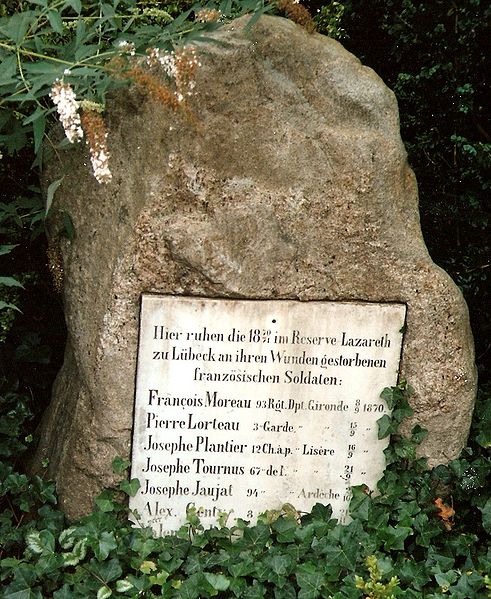 Hier ruhen die 18 70/71 im Reserve-Lazareth
zu Lübeck an ihren Wunden gestorbenen
französischen Soldaten:
François Moreau 93 Rgt. Dpt. Gironde 8/9 1870
Pierre Lorteau 3-Garde. " " 15/9 "
Josephe Plantier 12 Ch.à.p. " Lisère 16/9 "
Josephe Tournus 67-de l. " " 21/9 "
Josephe Jaujat 94 " " Ardèche "
Alex. 8